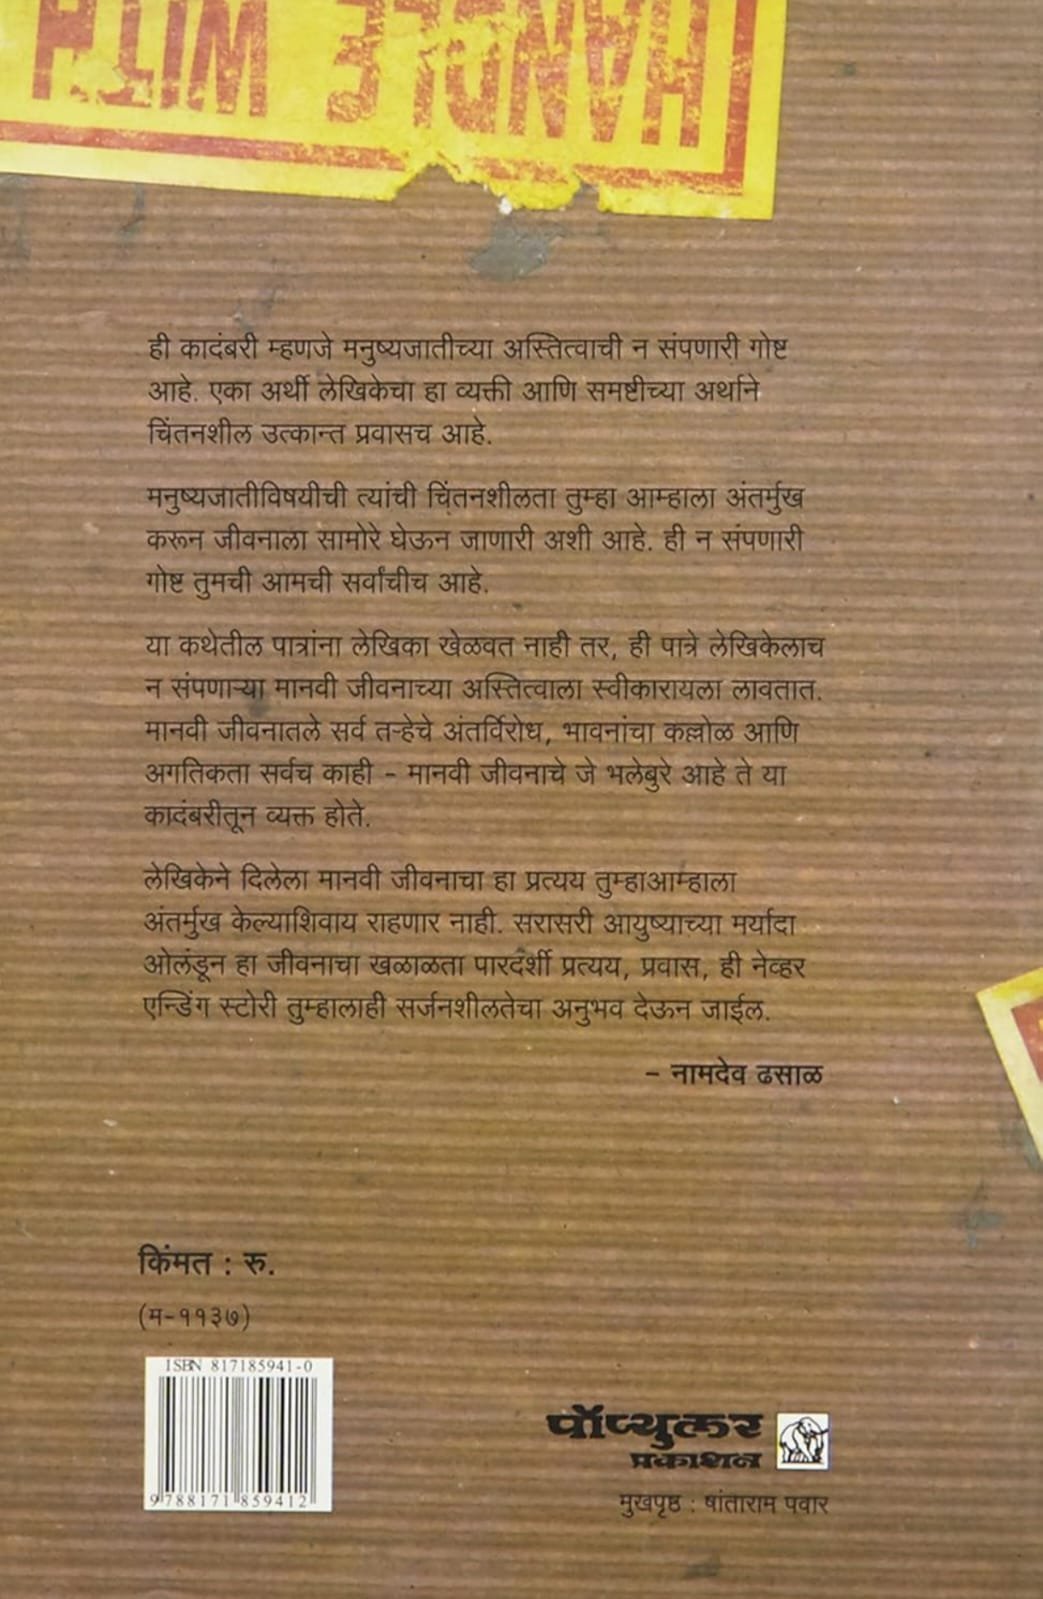 HANDLE WITH
ही कादंबरी म्हणजे मनुष्यजातीच्या अस्तित्वाची न संपणारी गोष्ट
आहे. एका अर्थी लेखिकेचा हा व्यक्ती आणि समष्टीच्या अर्थाने
चिंतनशील उत्कान्त प्रवासच आहे.
मनुष्यजातीविषयीची त्यांची चिंतनशीलता तुम्हा आम्हाला अंतर्मुख
करून जीवनाला सामोरे घेऊन जाणारी अशी आहे. ही न संपणारी
गोष्ट तुमची आमची सर्वांचीच आहे.
या कथेतील पात्रांना लेखिका खेळवत नाही तर, ही पात्रे लेखिकेलाच
न संपणाऱ्या मानवी जीवनाच्या अस्तित्वाला स्वीकारायला लावतात.
मानवी जीवनातले सर्व तऱ्हेचे अंतर्विरोध, भावनांचा कल्लोळ आणि
अगतिकता सर्वच काही - मानवी जीवनाचे जे भलेबुरे आहे ते या
कादंबरीतून व्यक्त होते.
लेखिकेने दिलेला मानवी जीवनाचा हा प्रत्यय तुम्हाआम्हाला
अंतर्मुख केल्याशिवाय राहणार नाही. सरासरी आयुष्याच्या मर्यादा
ओलंडून हा जीवनाचा खळाळता पारदर्शी प्रत्यय, प्रवास, ही नेव्हर
एन्डिंग स्टोरी तुम्हालाही सर्जनशीलतेचा अनुभव देऊन जाईल.
- नामदेव ढसाळ
किंमत : रु.
(म-११३७)
ISBN 817185941-0
9788171859412
पॉप्युलर
प्रकाशन
मुखपृष्ठ : षांताराम पवार